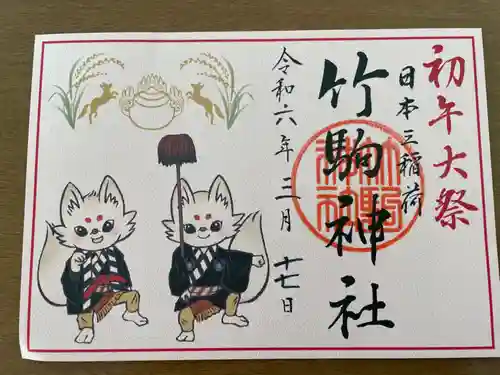 初午大祭
日本三稲荷
竹駒神社
令和六年三月十七日